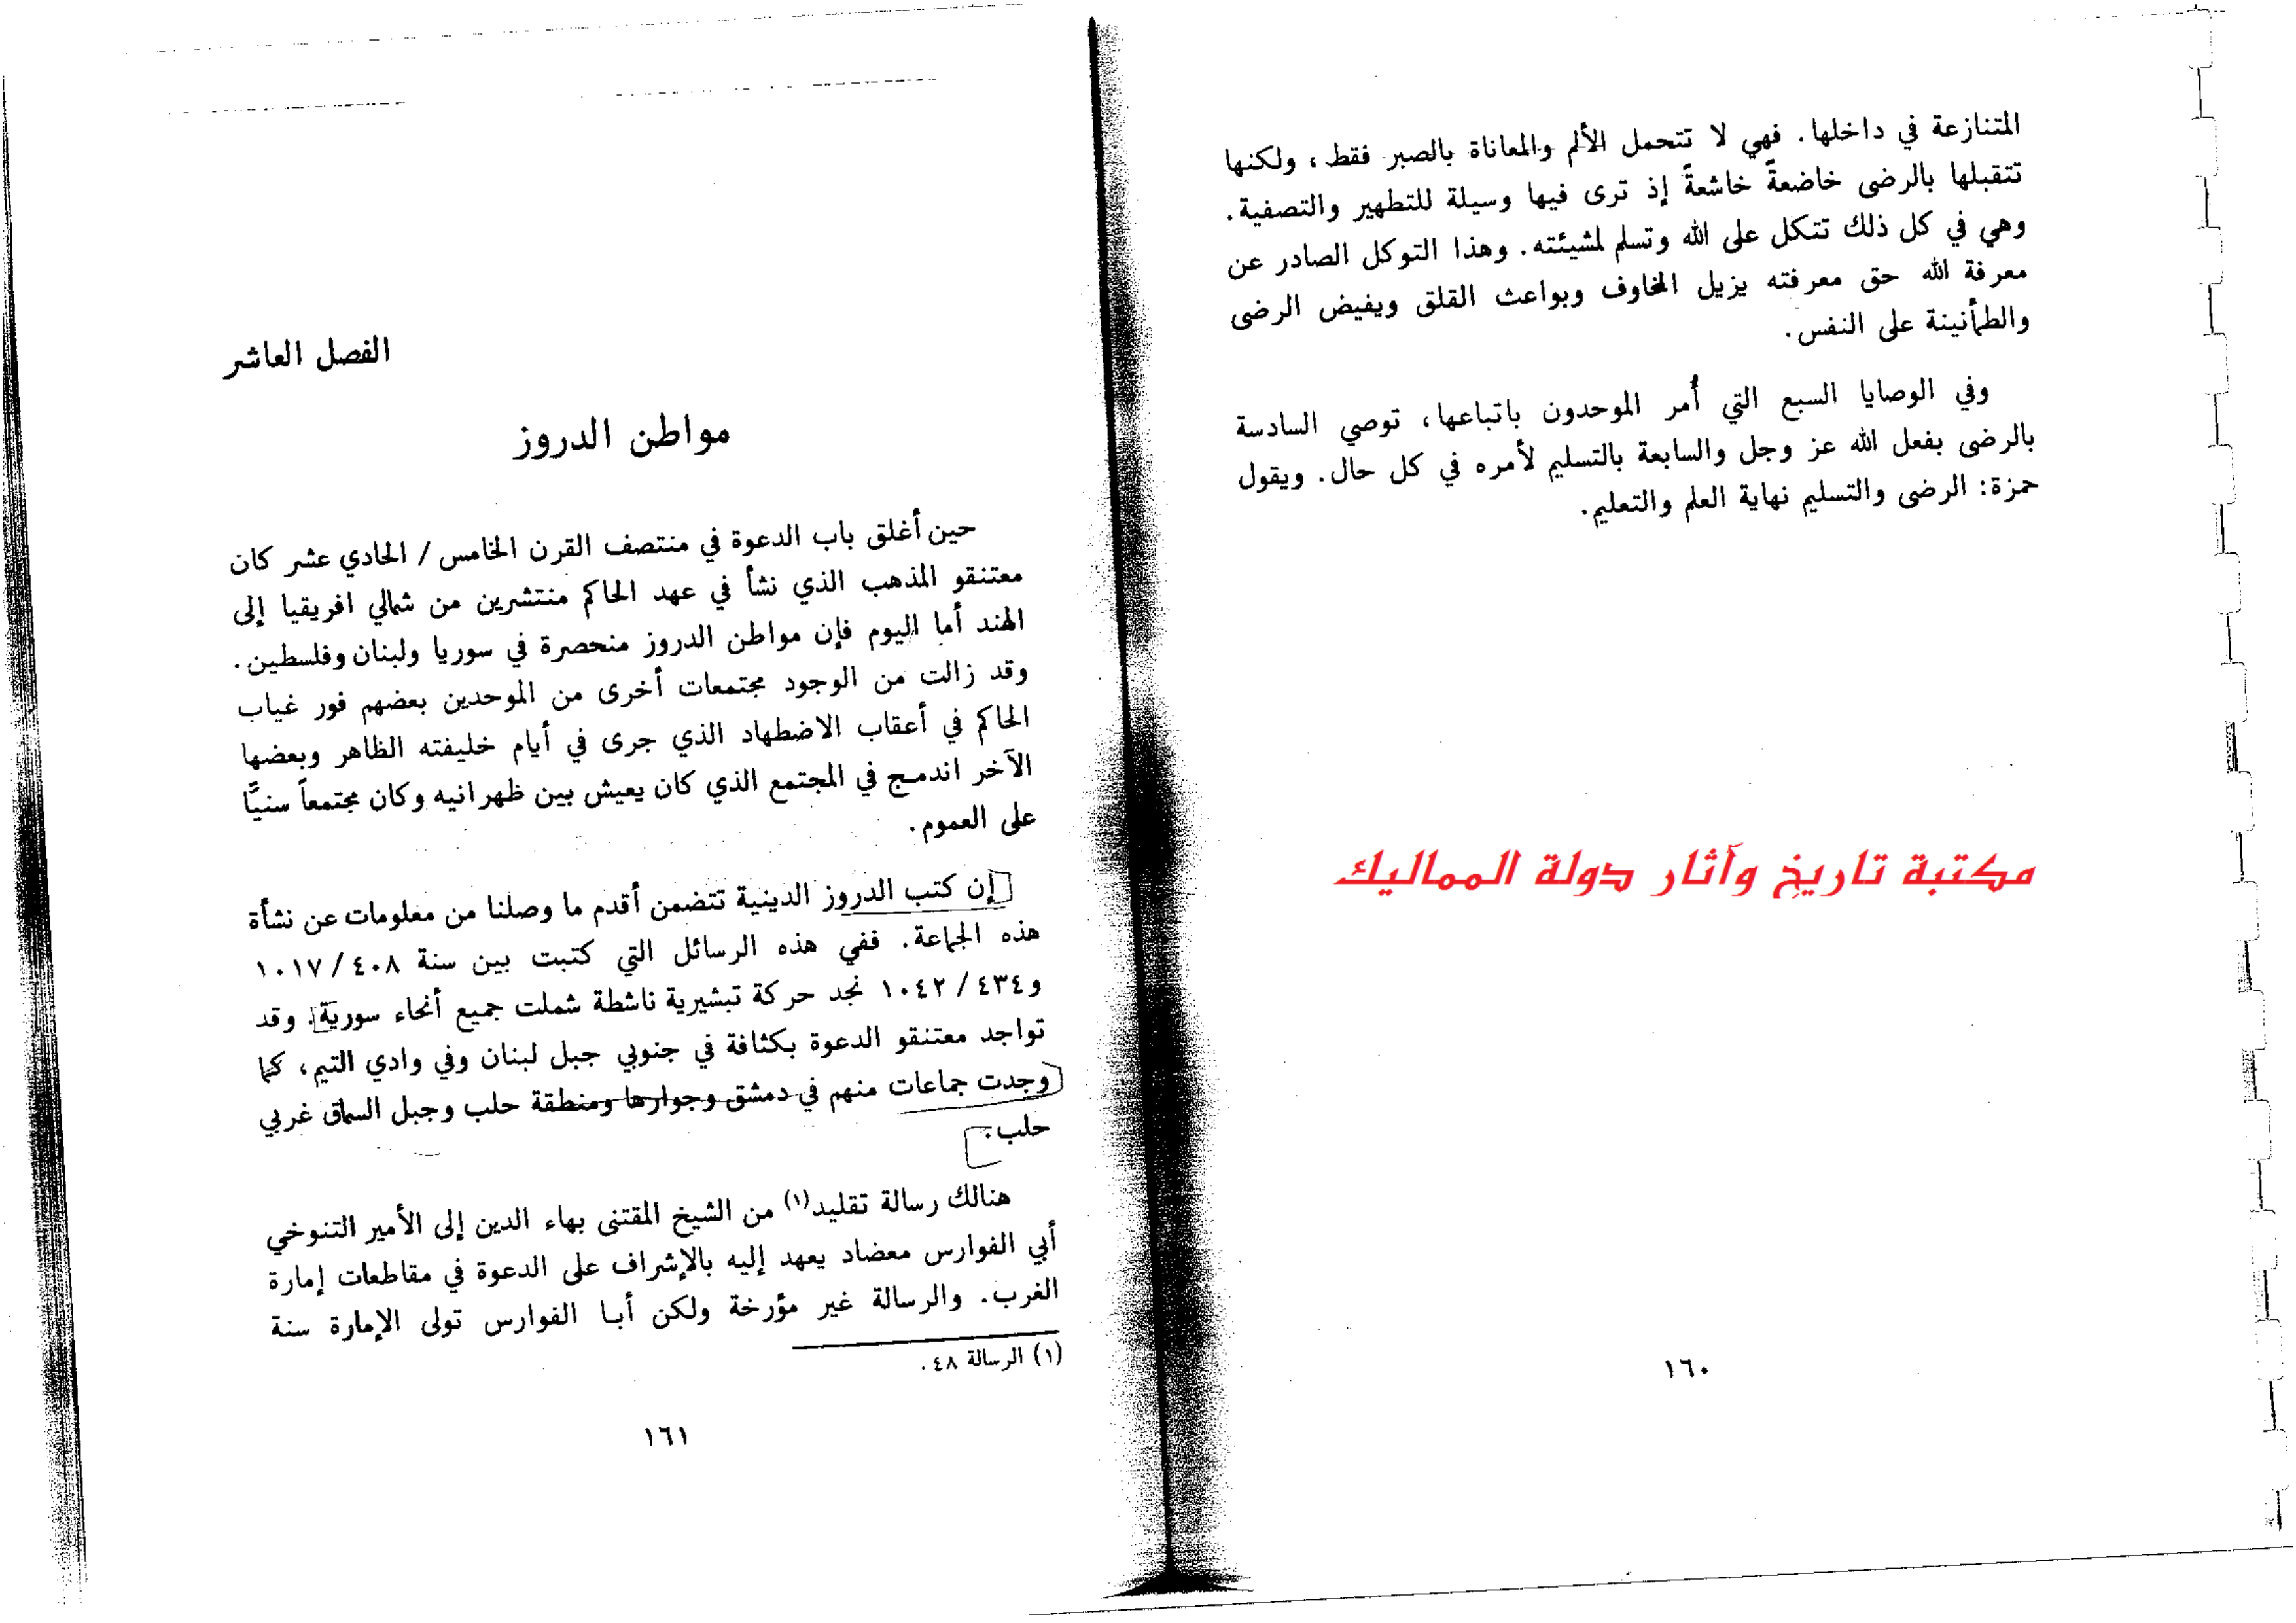 المتنازعة في داخلها. فهي لا تتحمل الألم والمعاناة بالصبر فقط، ولكنها
تتقبلها بالرضى خاضعةً خاشعةً إذ ترى فيها وسيلة للتطهير والتصفية.
وهي في كل ذلك تتكل على الله وتسلم لمشيئته. وهذا التوكل الصادر عن
معرفة الله حق معرفته يزيل المخاوف وبواعث القلق ويفيض الرضى
والطمأنينة على النفس.
وفي الوصايا السبع التي أُمر الموحدون باتباعها، توصي السادسة
بالرضى بفعل الله عز وجل والسابعة بالتسليم لأمره في كل حال. ويقول
حمزة: الرضى والتسليم نهاية العلم والتعليم.
مكتبة تاريخ وآثار دولة المماليك
١٦٠
الفصل العاشر
مواطن الدروز
حين أغلق باب الدعوة في منتصف القرن الخامس / الحادي عشر كان
معتنقو المذهب الذي نشأ في عهد الحاكم منتشرين من شمالي افريقيا إلى
الهند أما اليوم فإن مواطن الدروز منحصرة في سوريا ولبنان وفلسطين.
وقد زالت من الوجود مجتمعات أخرى من الموحدين بعضهم فور غياب
الحاكم في أعقاب الاضطهاد الذي جرى في أيام خليفته الظاهر وبعضها
الآخر اندمج في المجتمع الذي كان يعيش بين ظهرانيه وكان مجتمعاً سنيًّا
على العموم.
إن كتب الدروز الدينية تتضمن أقدم ما وصلنا من معلومات عن نشأة
هذه الجماعة. ففي هذه الرسائل التي كتبت بين سنة ٤٠٨/ ١٠١٧
و٤٣٤/ ١٠٤٢ نجد حركة تبشيرية ناشطة شملت جميع أنحاء سورية. وقد
تواجد معتنقو الدعوة بكثافة في جنوبي جبل لبنان وفي وادي التيم، كما
وجدت جماعات منهم في دمشق وجوارها ومنطقة حلب وجبل السماق غربي
حلب.
هنالك رسالة تقليد(١) من الشيخ المقتنى بهاء الدين إلى الأمير التنوخي
أبي الفوارس معضاد يعهد إليه بالإشراف على الدعوة في مقاطعات إمارة
الغرب. والرسالة غير مؤرخة ولكن أبا الفوارس تولى الإمارة سنة
(١) الرسالة ٤٨.
١٦١